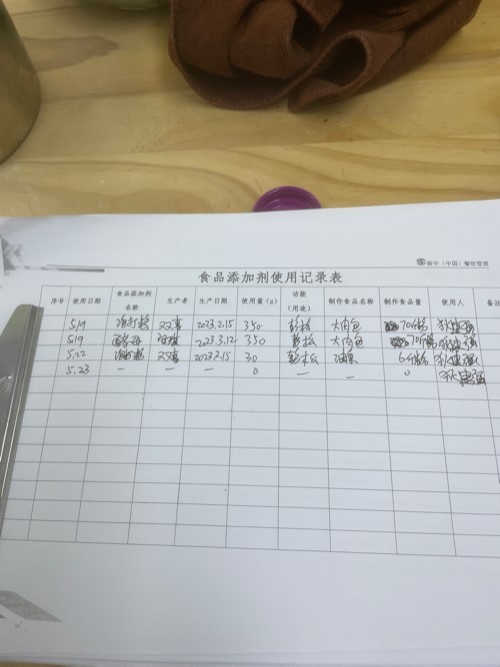 新中（中国）餐饮管理
食品添加剂使用记录表
序号 使用日期 食品添加剂名称 生产者 生产日期 使用量（g） 功能（用途） 制作食品名称 制作食品量 使用人 备注
5.19 泡打粉 双 2023.2.15 350 彭松 大肉包 70个
5.19 2023.3.12 350 彭松 大肉包 70个
5.22 双 2023.2.15 30 彭松 油条 6
5.23 — — — 0 — — 0